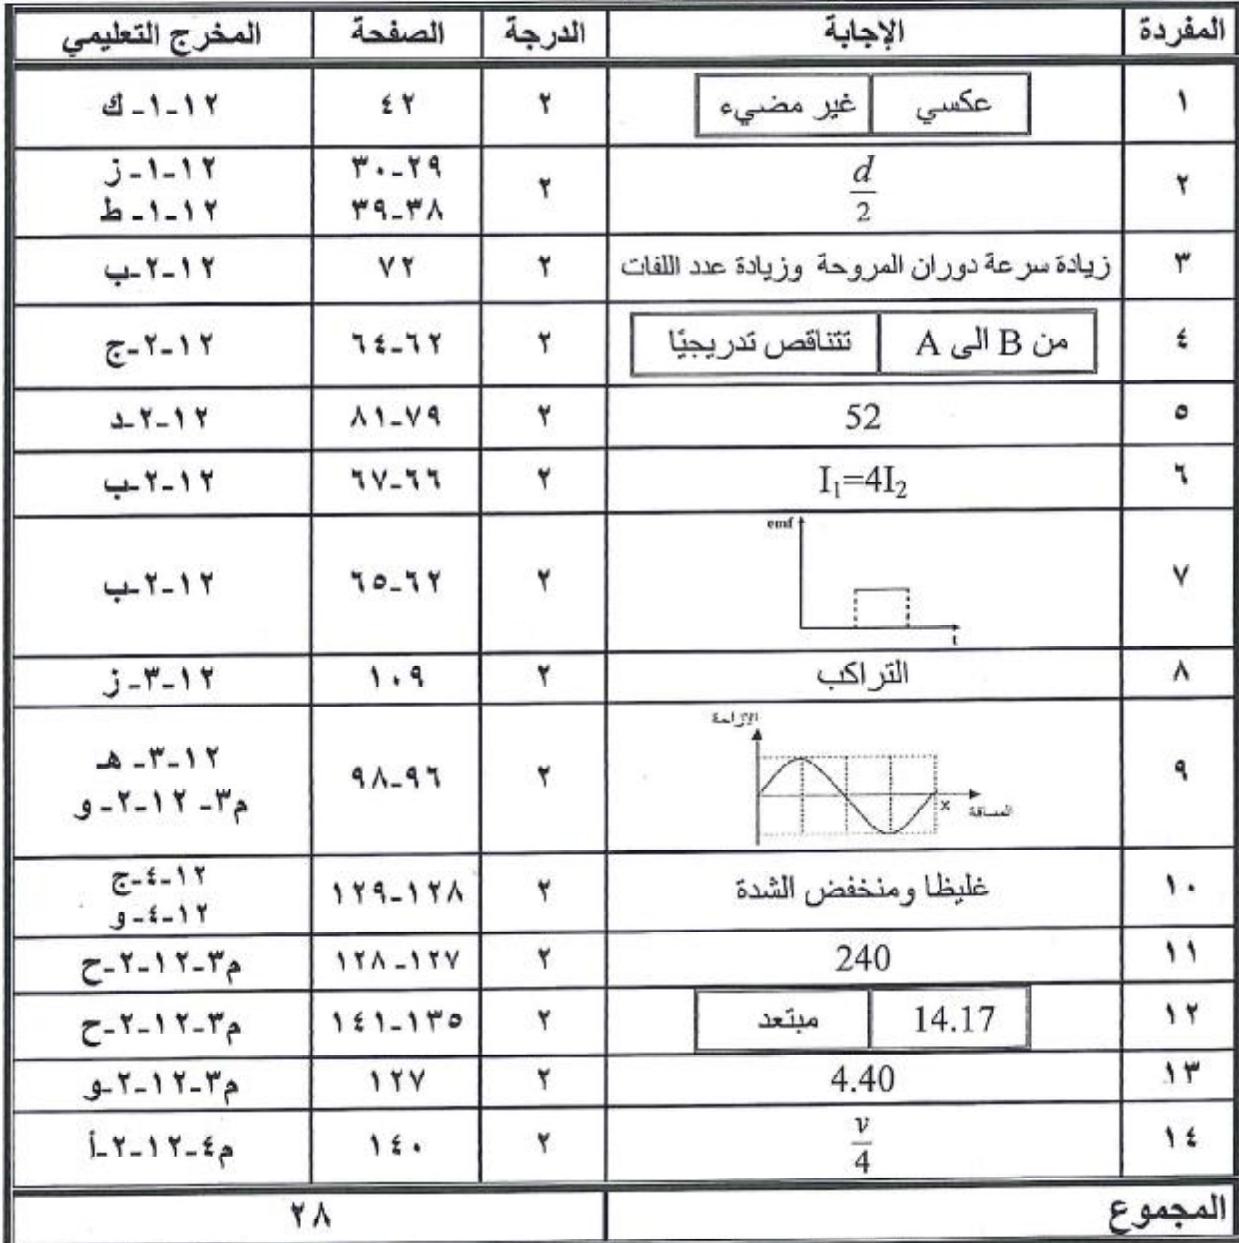 المفردة الإجابة الدرجة الصفحة المخرج التعليمي
١ عكسي غير مضيء ٢ ٤٢ ١٢-١-ك
٢ d/2 ٢ ٢٩-٣٠ ١٢-١-ز
٣٨-٣٩ ١٢-١-ط
٣ زيادة سرعة دوران المروحة وزيادة عدد اللفات ٢ ٧٢ ١٢-٢-ب
٤ من B الى A تتناقص تدريجيًا ٢ ٦٢-٦٤ ١٢-٢-ج
٥ 52 ٢ ٧٩-٨١ ١٢-٢-د
٦ I₁=4I₂ ٢ ٦٦-٦٧ ١٢-٢-ب
٧ emf t ٢ ٦٢-٦٥ ١٢-٢-ب
٨ التراكب ٢ ١٠٩ ١٢-٣-ز
٩ الإزاحة x المسافة ٢ ٩٦-٩٨ ١٢-٣-هـ
م٣-١٢-٢-و
١٠ غليظا ومنخفض الشدة ٢ ١٢٨-١٢٩ ١٢-٤-ج
١٢-٤-و
١١ 240 ٢ ١٢٧-١٢٨ م٣-١٢-٢-ح
١٢ 14.17 مبتعد ٢ ١٣٥-١٤١ م٣-١٢-٢-ح
١٣ 4.40 ٢ ١٢٧ م٣-١٢-٢-و
١٤ v/4 ٢ ١٤٠ م٤-١٢-٢-أ
المجموع ٢٨